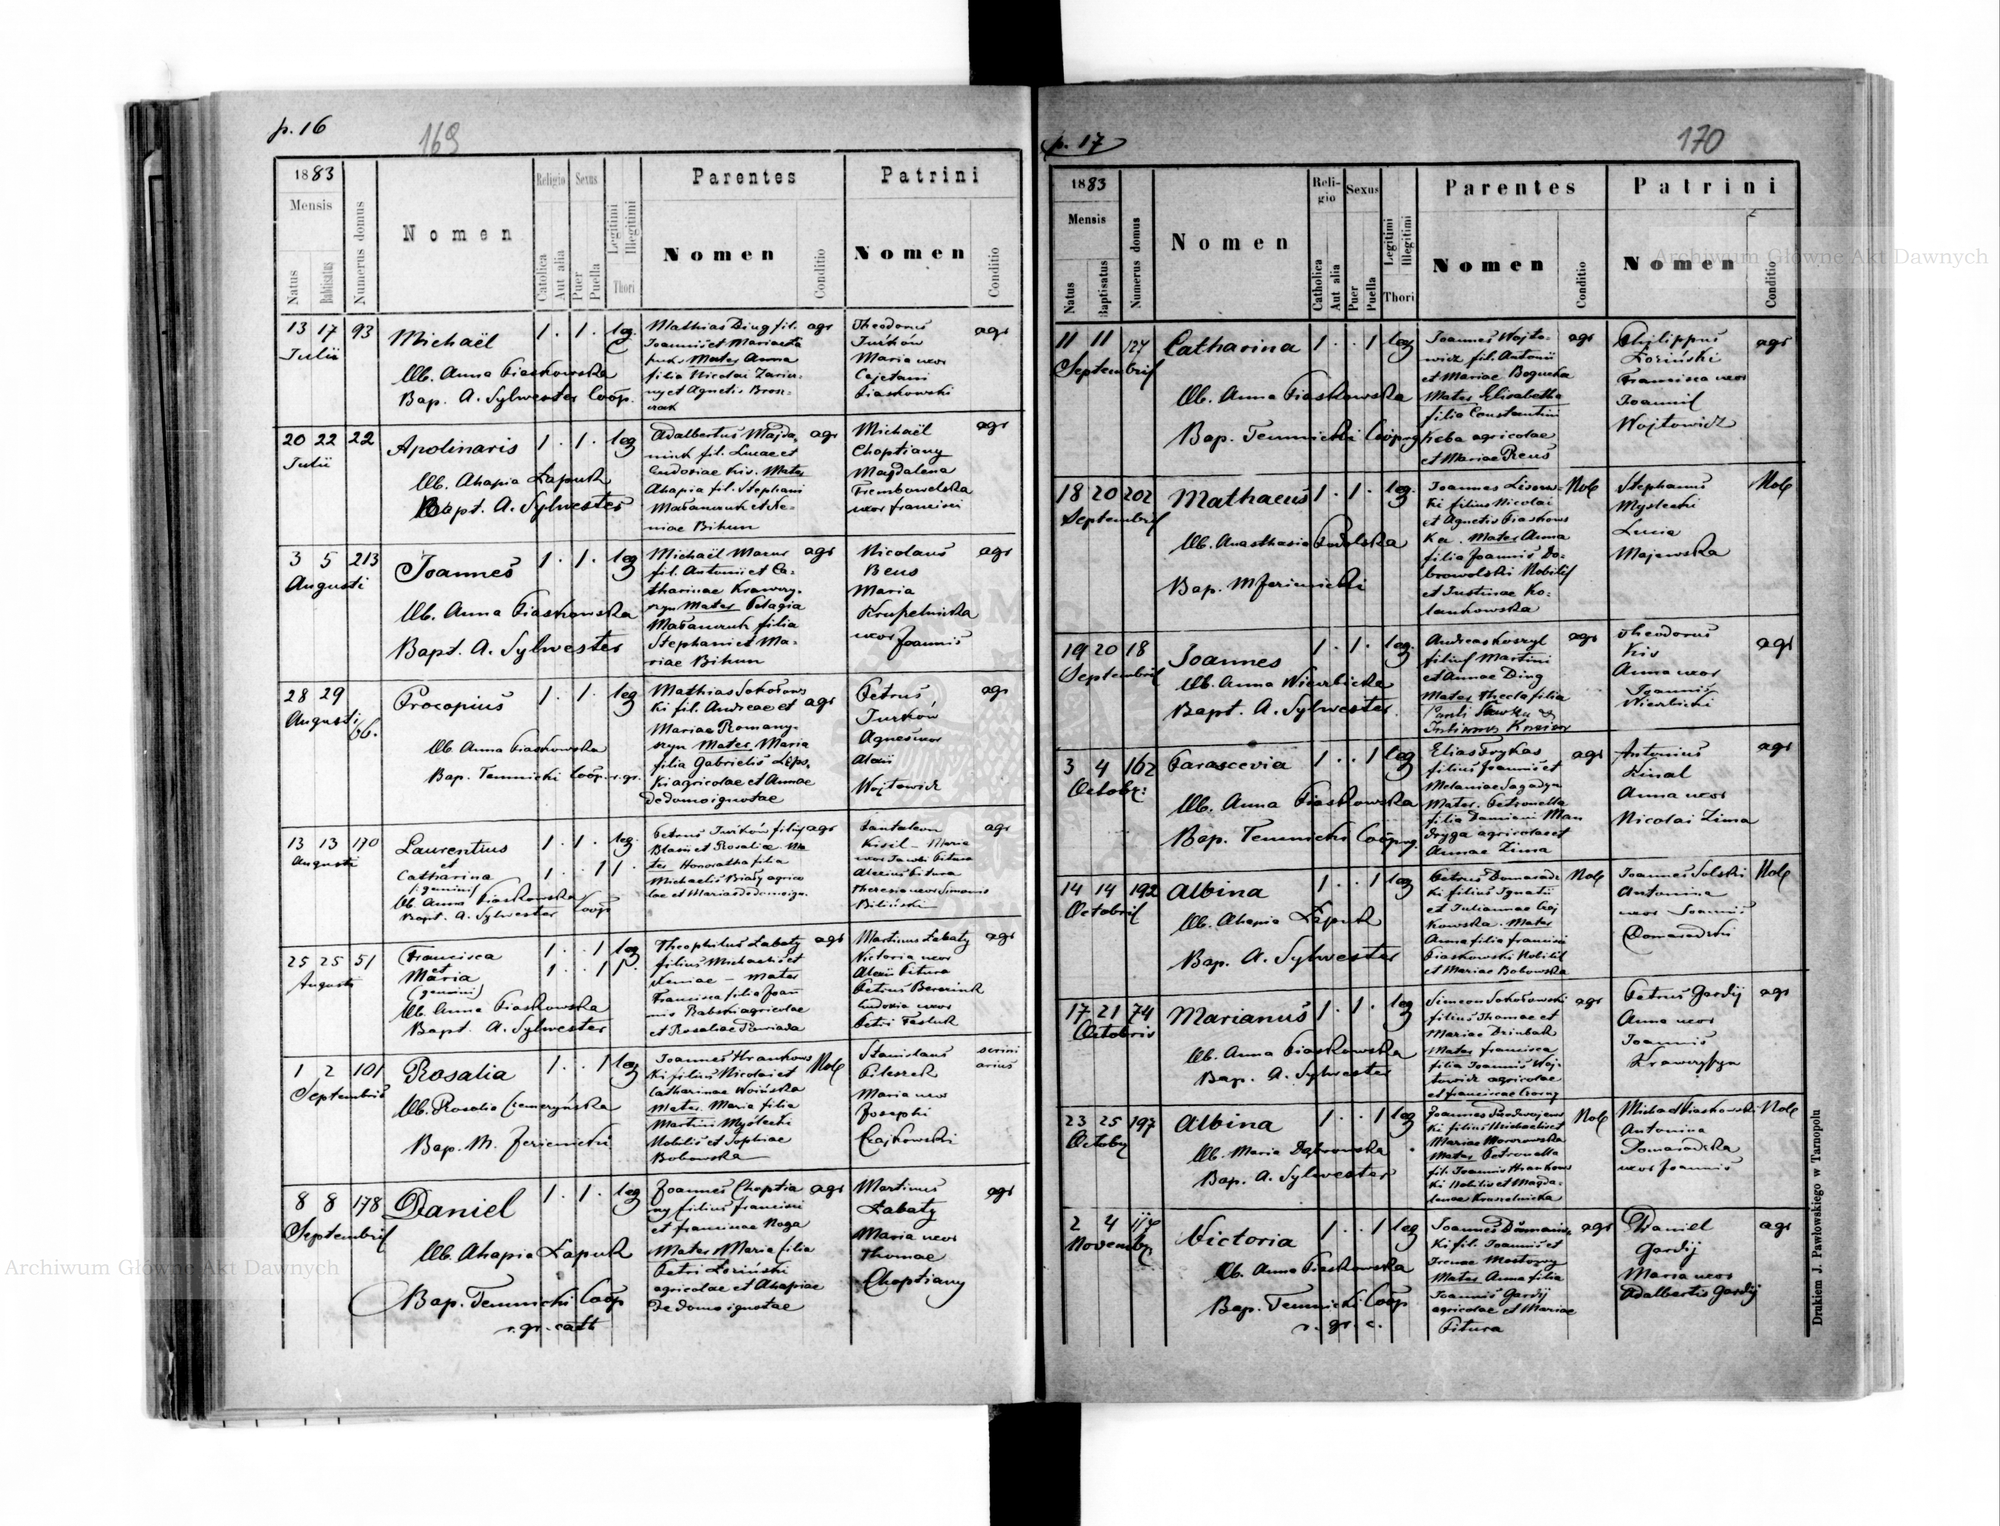 p. 16
169
1883
Mensis
Natus
Babtisatus
Numerus domus
Nomen
Religio
Catolica
Aut alia
Sexus
Puer
Puella
Legitimi
Illegitimi
Thori
Parentes
Nomen
Conditio
Patrini
Nomen
Conditio
13 17 93
Julii
Michaël
Ob. Anna Piaskowska
Bap. A. Sylwester Coop.
1 . 1 . leg
Mathias Ding fil.
Joannis et Mariae
Mater Anna
filia Nicolai
et Agnetis
agr
Theodorus
Turków
Maria uxor
Cajetani
Piaskowski
agr
20 22 22
Julii
Apolinaris
Ob. Ahapia Łapuch
Bapt. A. Sylwester
1 . 1 . leg
Adalbertus Majda
fil. Lucae et
Eudoxiae Kis. Mater
Ahapia fil. Stephani
et Xe-
niae Bihun
agr
Michaël
Choptiany
Magdalena
Trembowelska
uxor Francisci
agr
3 5 213
Augusti
Joannes
Ob. Anna Piaskowska
Bapt. A. Sylwester
1 . 1 . leg
Michaël Mazur
fil. Antonii et Ca-
tharinae Krawczy-
szyn Mater Pelagia
filia
Stephani et Ma-
riae Bihun
agr
Nicolaus
Beus
Maria
Krupelnicka
uxor Joannis
agr
28 29
Augusti
66.
Procopius
Ob. Anna Piaskowska
Bap. Temnicki Coop. r. gr.
1 . 1 . leg
Mathias Sokołows
ki fil. Andreae et
Mariae Romany-
szyn Mater Maria
filia Gabrielis
ki agricolae et Annae
de domo ignotae
agr
Petrus
Turków
Agnes uxor
Alexii
Wojtowicz
agr
13 13 170
Augusti
Laurentius
et
Catharina
(gemini)
Ob. Anna Piaskowska
Bapt. A. Sylwester Coop
1 . 1 . leg
1 . . 1 1 .
Petrus Turków filius
Blasii et Rosaliae Ma
ter Honoratha filia
Michaelis Biały agrico
lae et Mariae de domo ign.
agr
Pantaleon
Kisil - Maria
uxor Jacobi Pitura
Alexius Pitura
Theresia uxor Simonis
Biliński
agr
25 25 51
Augusti
Francisca
et
Maria
(gemini)
Ob. Anna Piaskowska
Bapt. A. Sylwester
1 . . 1 leg
1 . . 1
Theophilus Łabaty
filius Michaelis et
Xeniae - Mater
Francisca filia Joan
nis Babski agricolae
et Rosaliae Powiada
agr
Martinus Łabaty
Victoria uxor
Alexii Pitura
Petrus Berezink
Eudoxia uxor
Petri
agr
1 2 101
Septembris
Rosalia
Ob. Rosalia Czemeryńska
Bap. M. Jeziernicki
1 . . 1 leg
Joannes Hrankows
ki filius Nicolai et
Catharinae Woińska
Mater Maria filia
Martini Myślecki
Nobilis et Sophiae
Bobowska
Nob
Stanislaus
Peleszek
Maria uxor
Josephi
Czajkowski
scrini
arius
8 8 178
Septembris
Daniel
Ob. Ahapia Łapuch
Bap. Temnicki Coop
r. gr. cath
1 . 1 . leg
Joannes Choptia
ny filius Francisci
et Franciscae Noga
Mater Maria filia
Petri Łoziński
agricolae et Ahapiae
de domo ignotae
agr
Martinus
Łabaty
Maria uxor
Thomae
Choptiany
agr
p. 17
170
1883
Mensis
Natus
Baptisatus
Numerus domus
Nomen
Reli-
gio
Catholica
Aut alia
Sexus
Puer
Puella
Legitimi
Illegitimi
Thori
Parentes
Nomen
Conditio
Patrini
Nomen
Conditio
11 11 127
Septembris
Catharina
Ob. Anna Piaskowska
Bap. Temnicki Coop rg
1 . . 1 leg
Joannes Wojto-
wicz fil. Antonii
et Mariae Bogucka
Mater Elisabetha
filia Constantini
Keba agricolae
et Mariae Beus
agr
Philippus
Łoziński
Francisca uxor
Joannis
Wojtowicz
agr
18 20 202
Septembris
Mathaeus
Ob. Anasthasia Podolska
Bap. M Jeziernicki
1 . 1 . leg.
Joannes Lisows-
ki filius Nicolai
et Agnetis Piaskows
ka. Mater Anna
filia Joannis Do-
browolski Nobilis
et Justinae Ko-
lankowska
Nob
Stephanus
Myslecki
Lucia
Majewska
Nob
19 20 18
Septembris
Joannes
Ob. Anna Wierzbicka
Bapt. A. Sylwester
1 . 1 . leg.
Andreas
filius Martini
et Annae Ding
Mater Thecla filia
Pauli
agr
Theodorus
Kis
Anna uxor
Joannis
Wierzbicki
agr
3 4 162
Octobr:
Parascevia
Ob. Anna Piaskowska
Bap. Temnicki Coop rg.
1 . . 1 leg
Elias Frykas
filius Joannis et
Melaniae Sagadyn
Mater Petronella
filia Damiani Man
dryga agricolae et
Annae Zima
agr
Antonius
Kinal
Anna uxor
Nicolai Zima
agr
14 14 192
Octobris
Albina
Ob. Ahapia Łapuch
Bap. A. Sylwester
1 . . 1 leg
Petrus Domaradz
ki filius Ignatii
et Juliannae Czaj
kowska. Mater
Anna filia Francisci
Piaskowski Nobilis
et Mariae Bobowska
Nob
Joannes Solski
Antonina
uxor Joannis
Domaradzki
Nob
17 21 74
Octobris
Marianus
Ob. Anna Piaskowska
Bap. A. Sylwester
1 . 1 . leg
Simeon Sokołowski
filius Thomae et
Mariae Dziubak
Mater Francisca
filia Joannis Woj-
towicz agricolae
et Franciscae Czorny
agr
Petrus Gardij
Anna uxor
Joannis
Krawczyszyn
agr
23 25 197
Octobr
Albina
Ob. Maria Dąbrowska
Bap. A. Sylwester
1 . . 1 leg
Joannes
ki filius Michaelis et
Mariae Morozowska
Mater Petronella
fil. Joannis Hrankows
ki Nobilis et Magda-
lenae Krasnelnicka
Nob
Michael Piaskowski
Antonina
Domaradzka
uxor Joannis
Nob
2 4 114
Novembr.
Victoria
Ob. Anna Piaskowska
Bap. Temnicki Coop
r. gr. c.
1 . . 1 leg
Joannes Domaradz-
ki fil. Joannis et
Irenae Mostowy
Mater Anna filia
Joannis Gardij
agricolae et Mariae
Pitura
agr
Daniel
Gardij
Maria uxor
Adalberti Gardij
agr
Drukiem J. Pawłowskiego w Tarnopolu
Archiwum Główne Akt Dawnych
Archiwum Główne Akt Dawnych